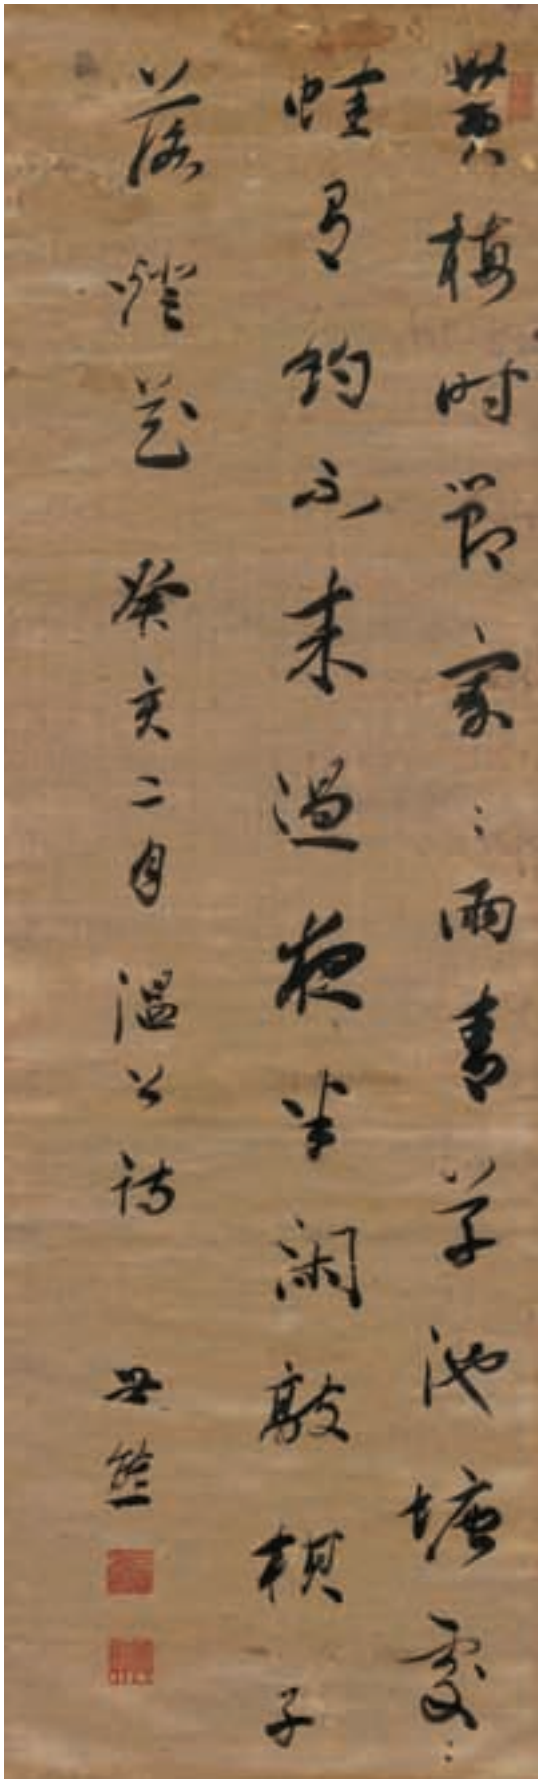 黃梅時節家〻雨青草池塘處〻
蛙有約不來過夜半閑敲棋子
落燈花 癸亥二月溫公詩